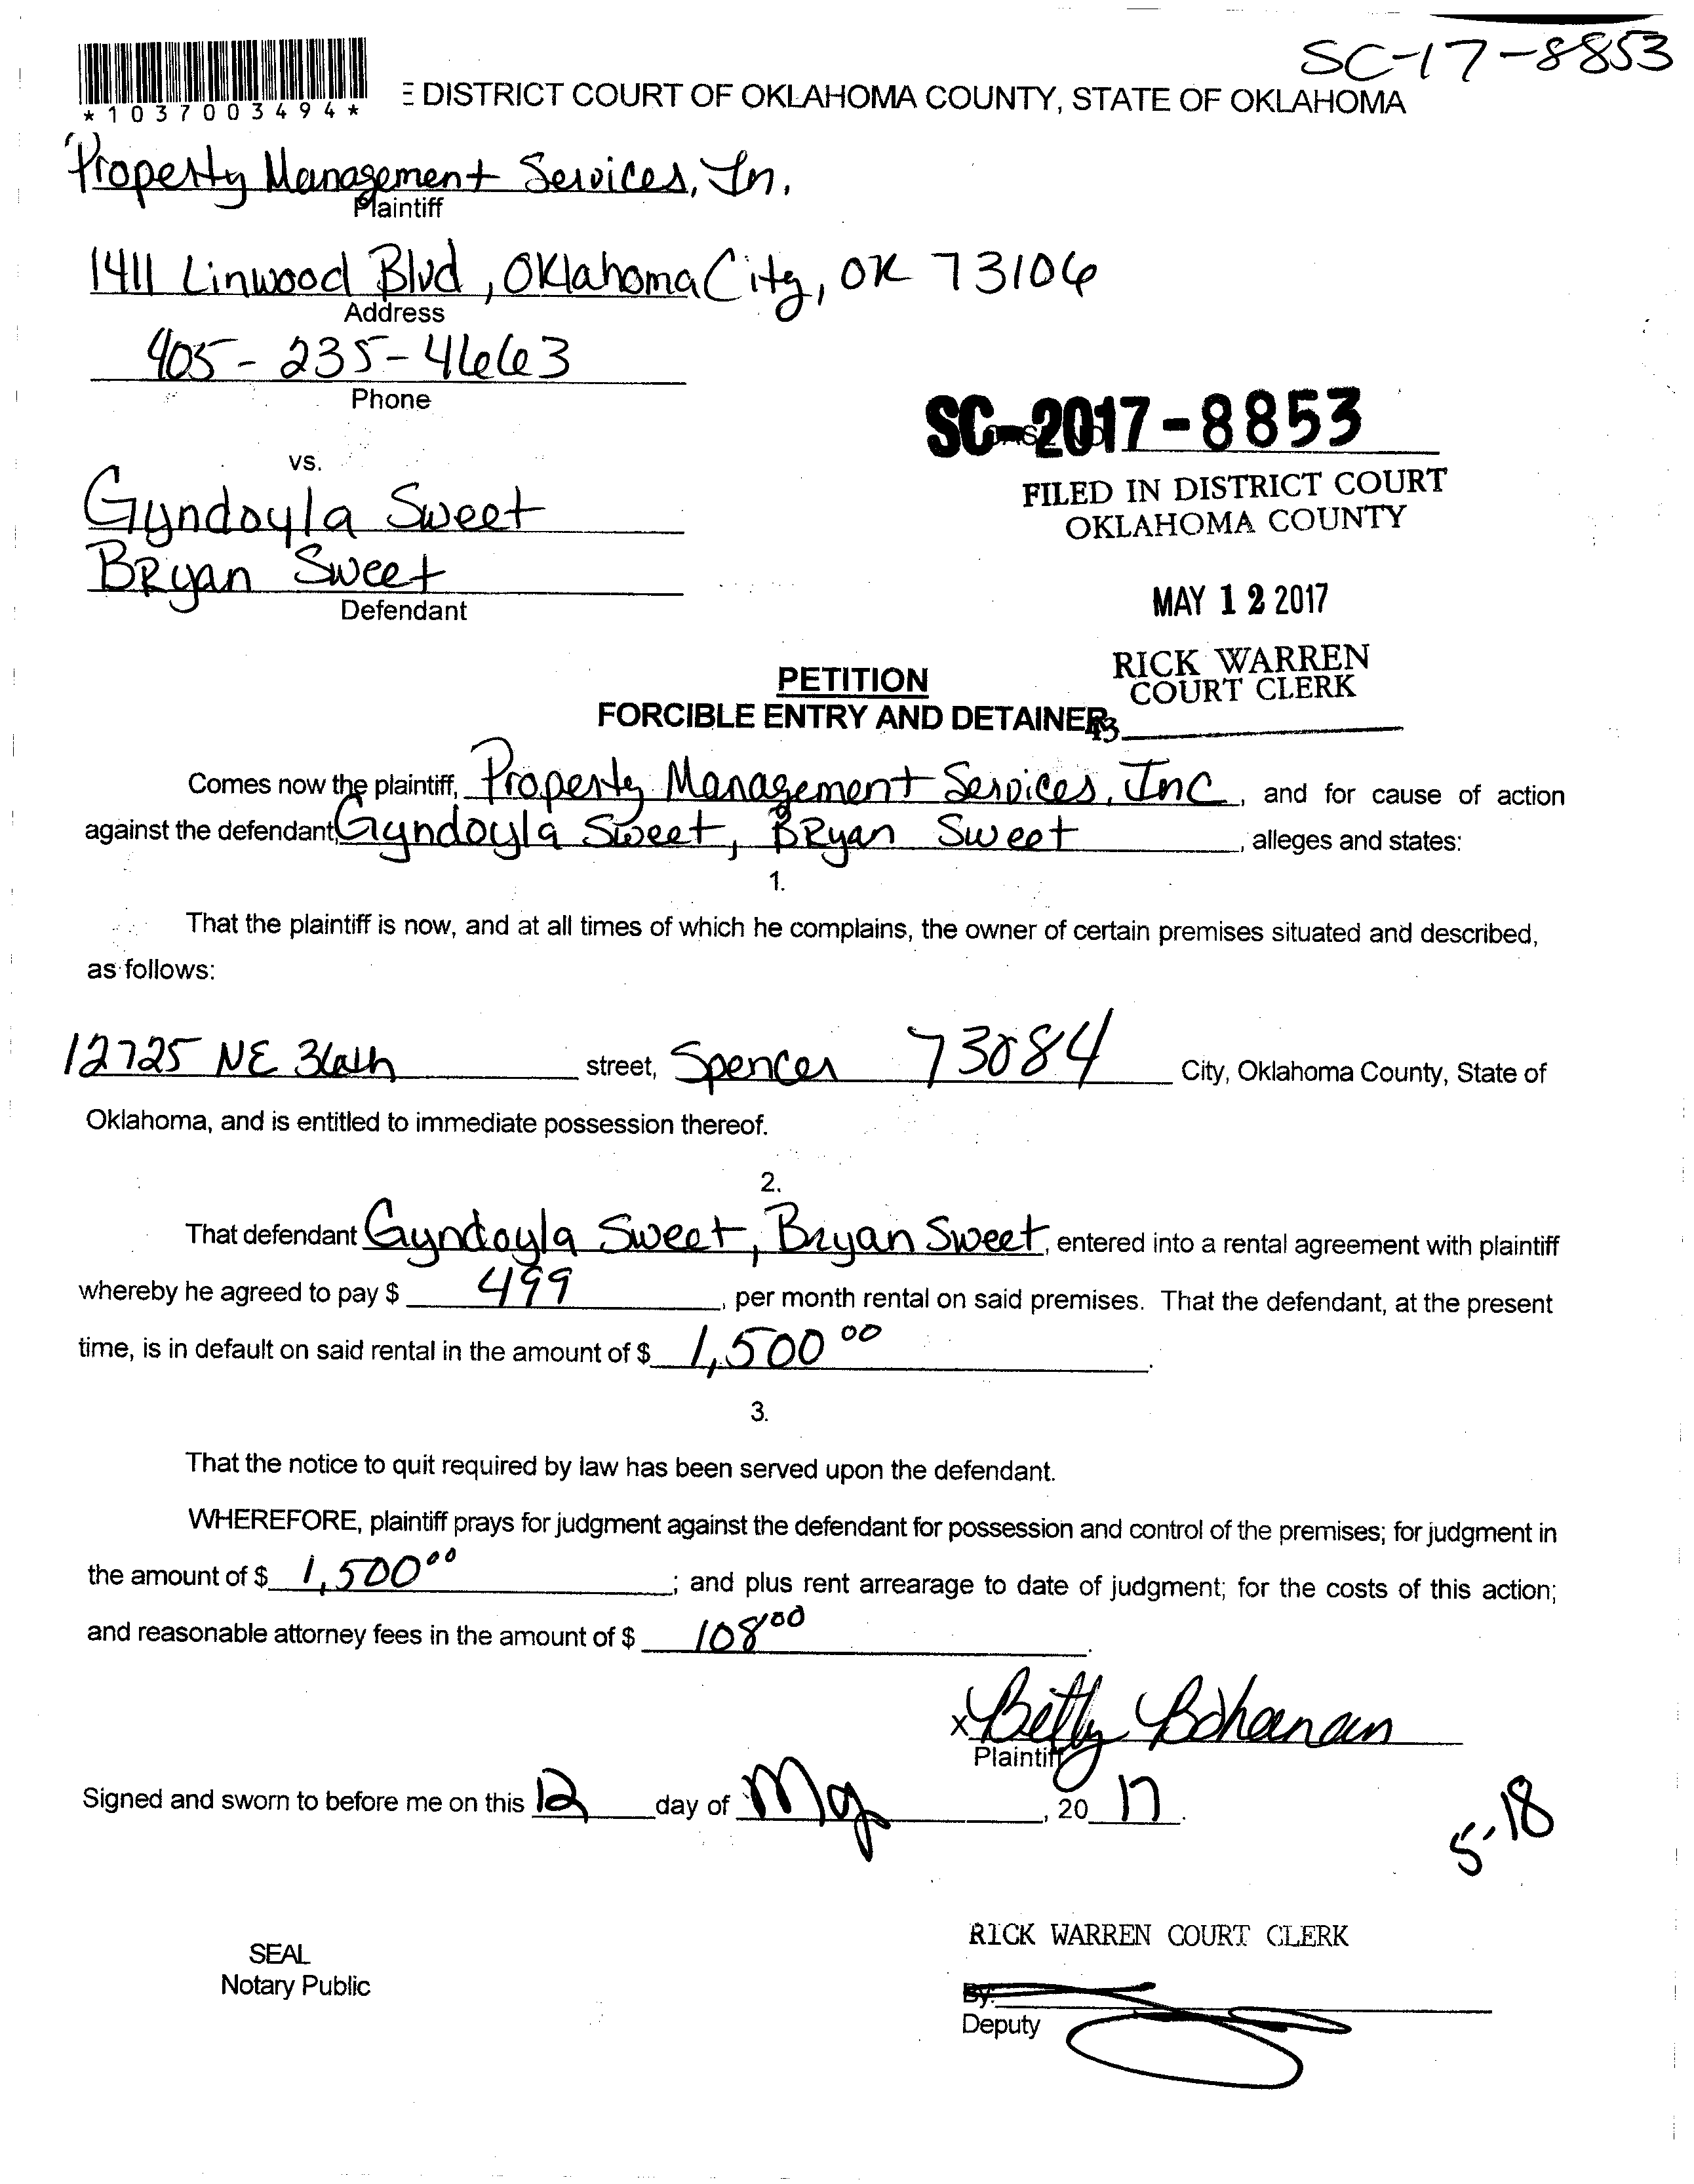 SC-17-8853
*1037003494*
E DISTRICT COURT OF OKLAHOMA COUNTY, STATE OF OKLAHOMA
Property Management Services, In.
Plaintiff
1411 Linwood Blvd, Oklahoma City, OK 73106
Address
405-235-4663
Phone
SC-2017-8853
vs.
FILED IN DISTRICT COURT
OKLAHOMA COUNTY
Gyndoyla Sweet
Bryan Sweet
Defendant
MAY 12 2017
RICK WARREN
COURT CLERK
PETITION
FORCIBLE ENTRY AND DETAINER
43
Comes now the plaintiff, Property Management Services, Inc, and for cause of action
against the defendant, Gyndoyla Sweet, Bryan Sweet, alleges and states:
1.
That the plaintiff is now, and at all times of which he complains, the owner of certain premises situated and described,
as follows:
12725 NE 36th street, Spencer 73084 City, Oklahoma County, State of
Oklahoma, and is entitled to immediate possession thereof.
2.
That defendant Gyndoyla Sweet, Bryan Sweet, entered into a rental agreement with plaintiff
whereby he agreed to pay $ 499, per month rental on said premises. That the defendant, at the present
time, is in default on said rental in the amount of $ 1,500 00.
3.
That the notice to quit required by law has been served upon the defendant.
WHEREFORE, plaintiff prays for judgment against the defendant for possession and control of the premises; for judgment in
the amount of $ 1,500 00; and plus rent arrearage to date of judgment; for the costs of this action;
and reasonable attorney fees in the amount of $ 108 00.
x Betty Bohanan
Plaintiff
Signed and sworn to before me on this 12 day of May, 20 17.
5-18
RICK WARREN COURT CLERK
SEAL
Notary Public
By:
Deputy